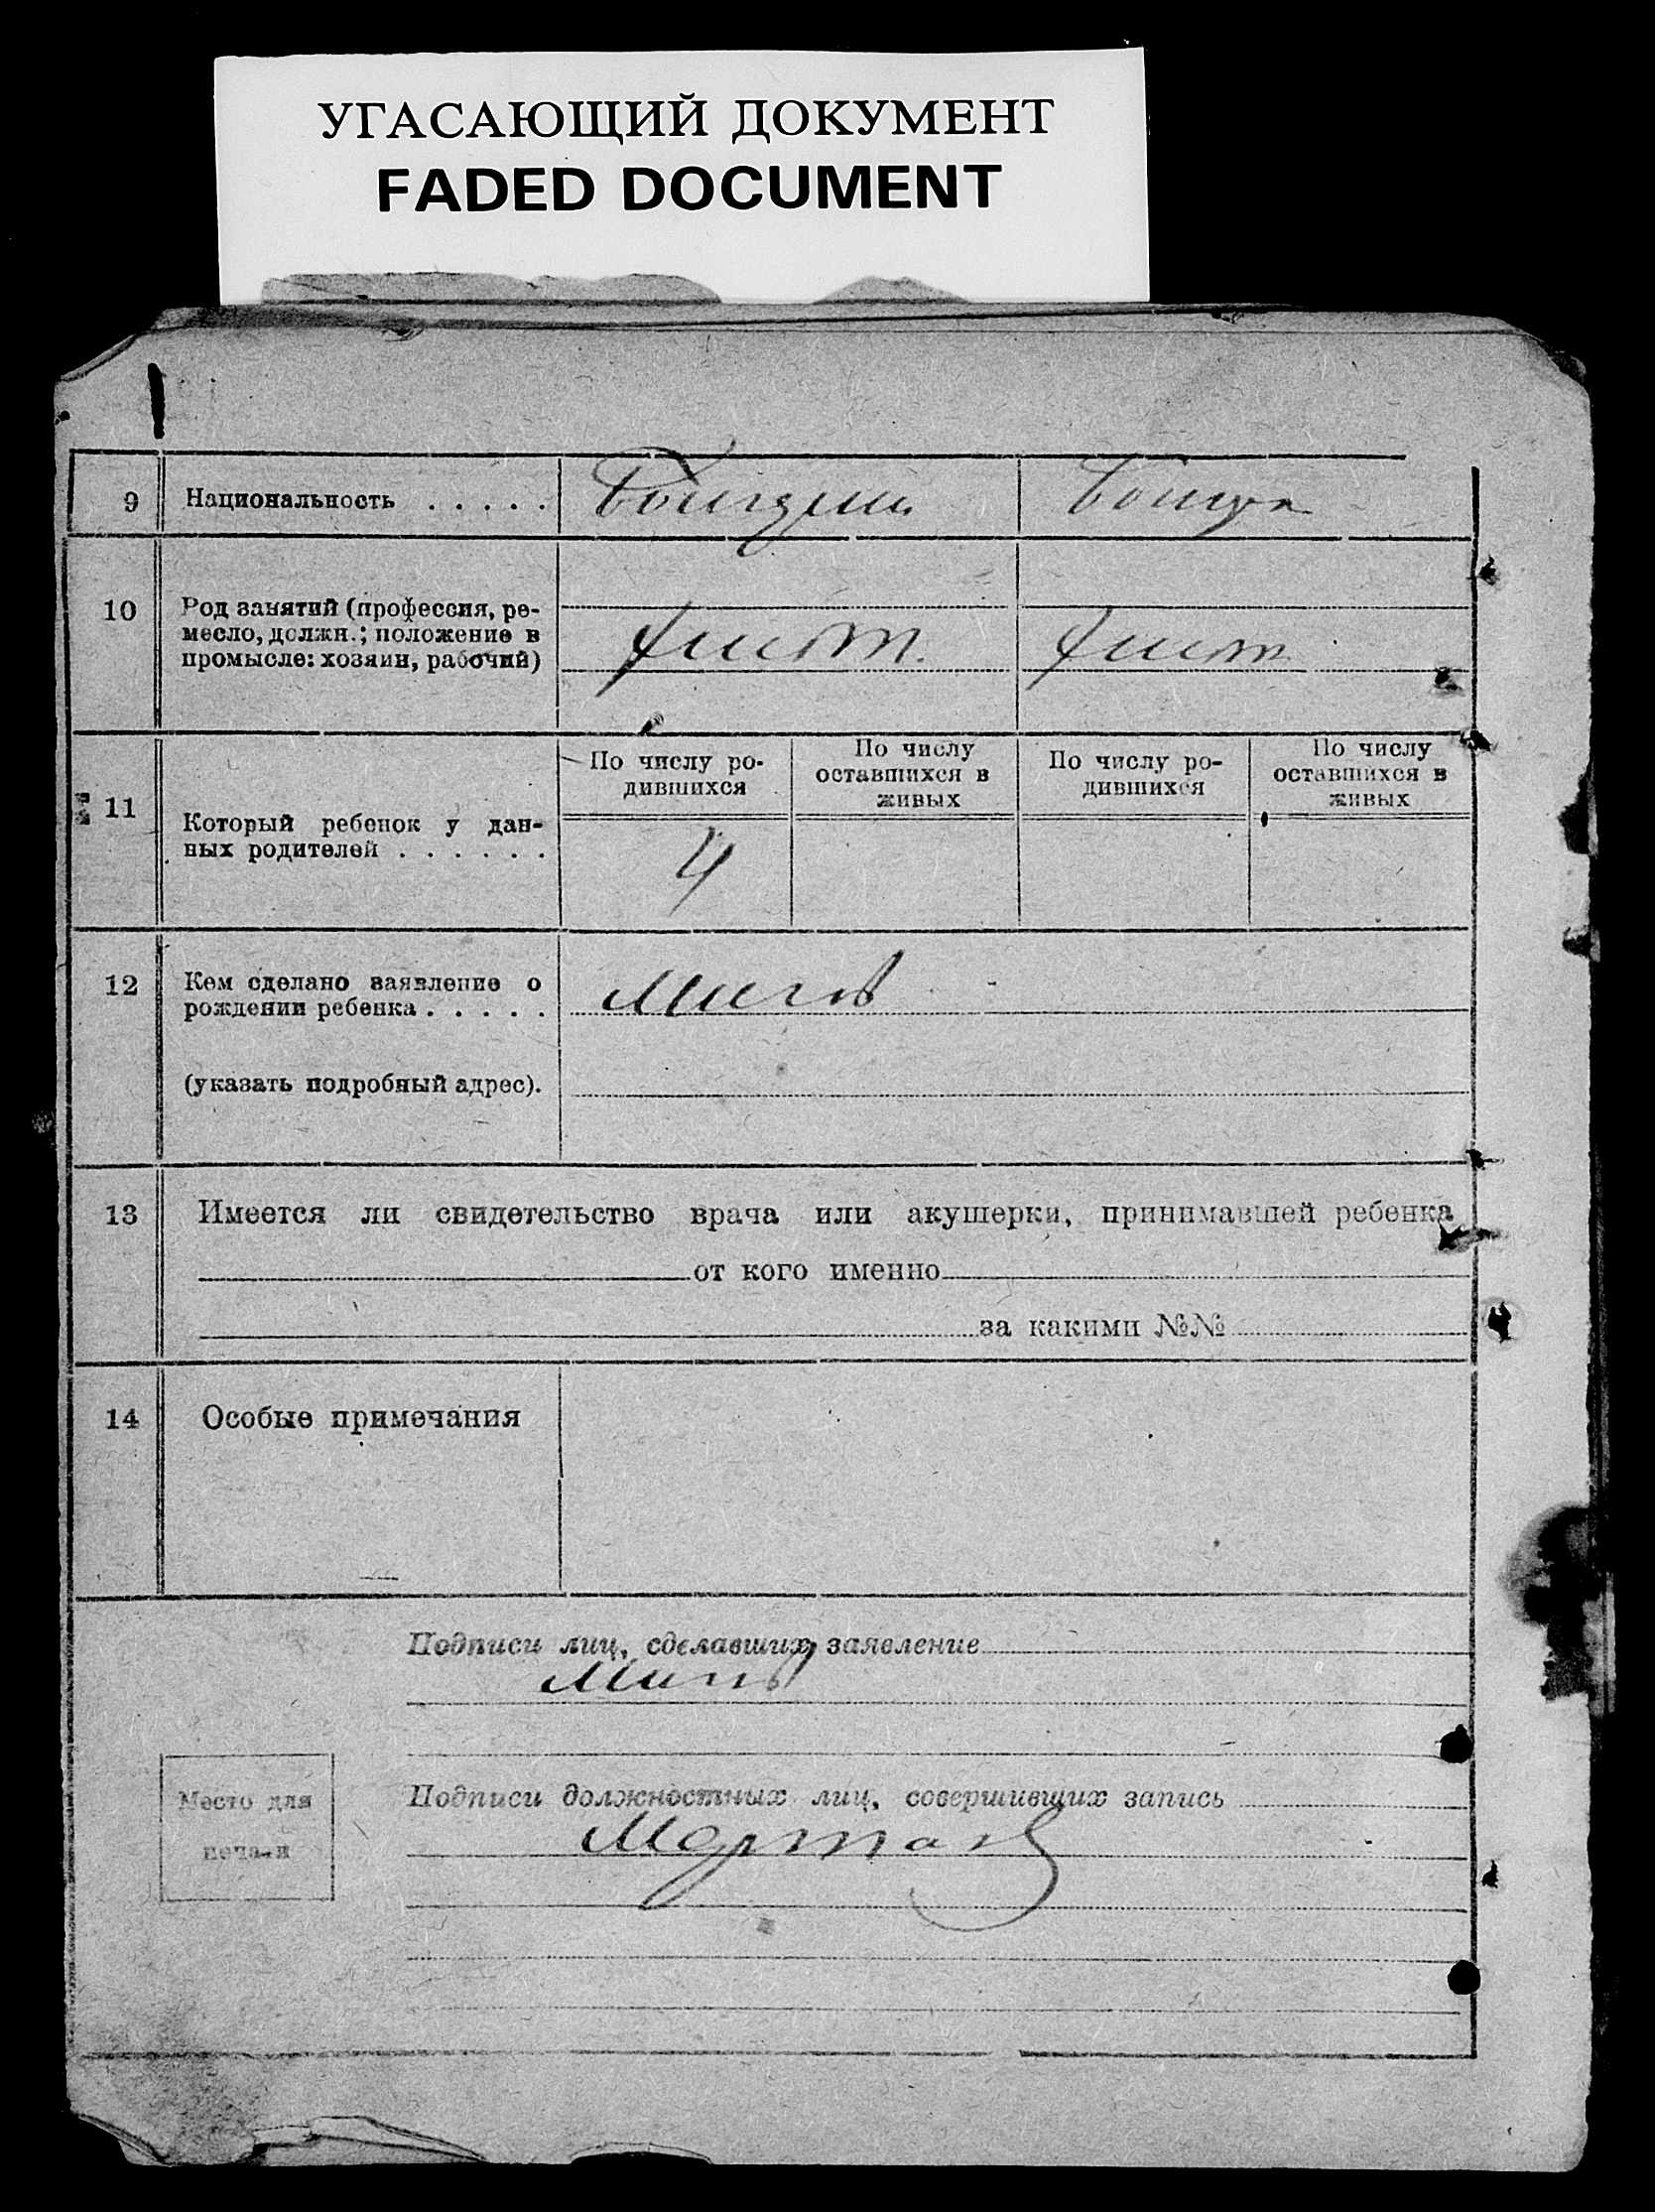 УГАСАЮЩИЙ ДОКУМЕНТ
FADED DOCUMENT
9 Национальность . . . . .
10 Род занятий (профессия, ре-
месло, должн.; положение в
промысле: хозяин, рабочий)
По числу ро-
дившихся
По числу
оставшихся в
живых
По числу ро-
дившихся
По числу
оставшихся в
живых
11 Который ребенок у дан-
ных родителей . . . . . .
4
12 Кем сделано заявление о
рождении ребенка . . . . .
(указать подробный адрес).
13 Имеется ли свидетельство врача или акушерки, принимавшей ребенка
от кого именно
за какими №№
14 Особые примечания
Подписи лиц, сделавших заявление
Место для
печати
Подписи должностных лиц, совершивших запись